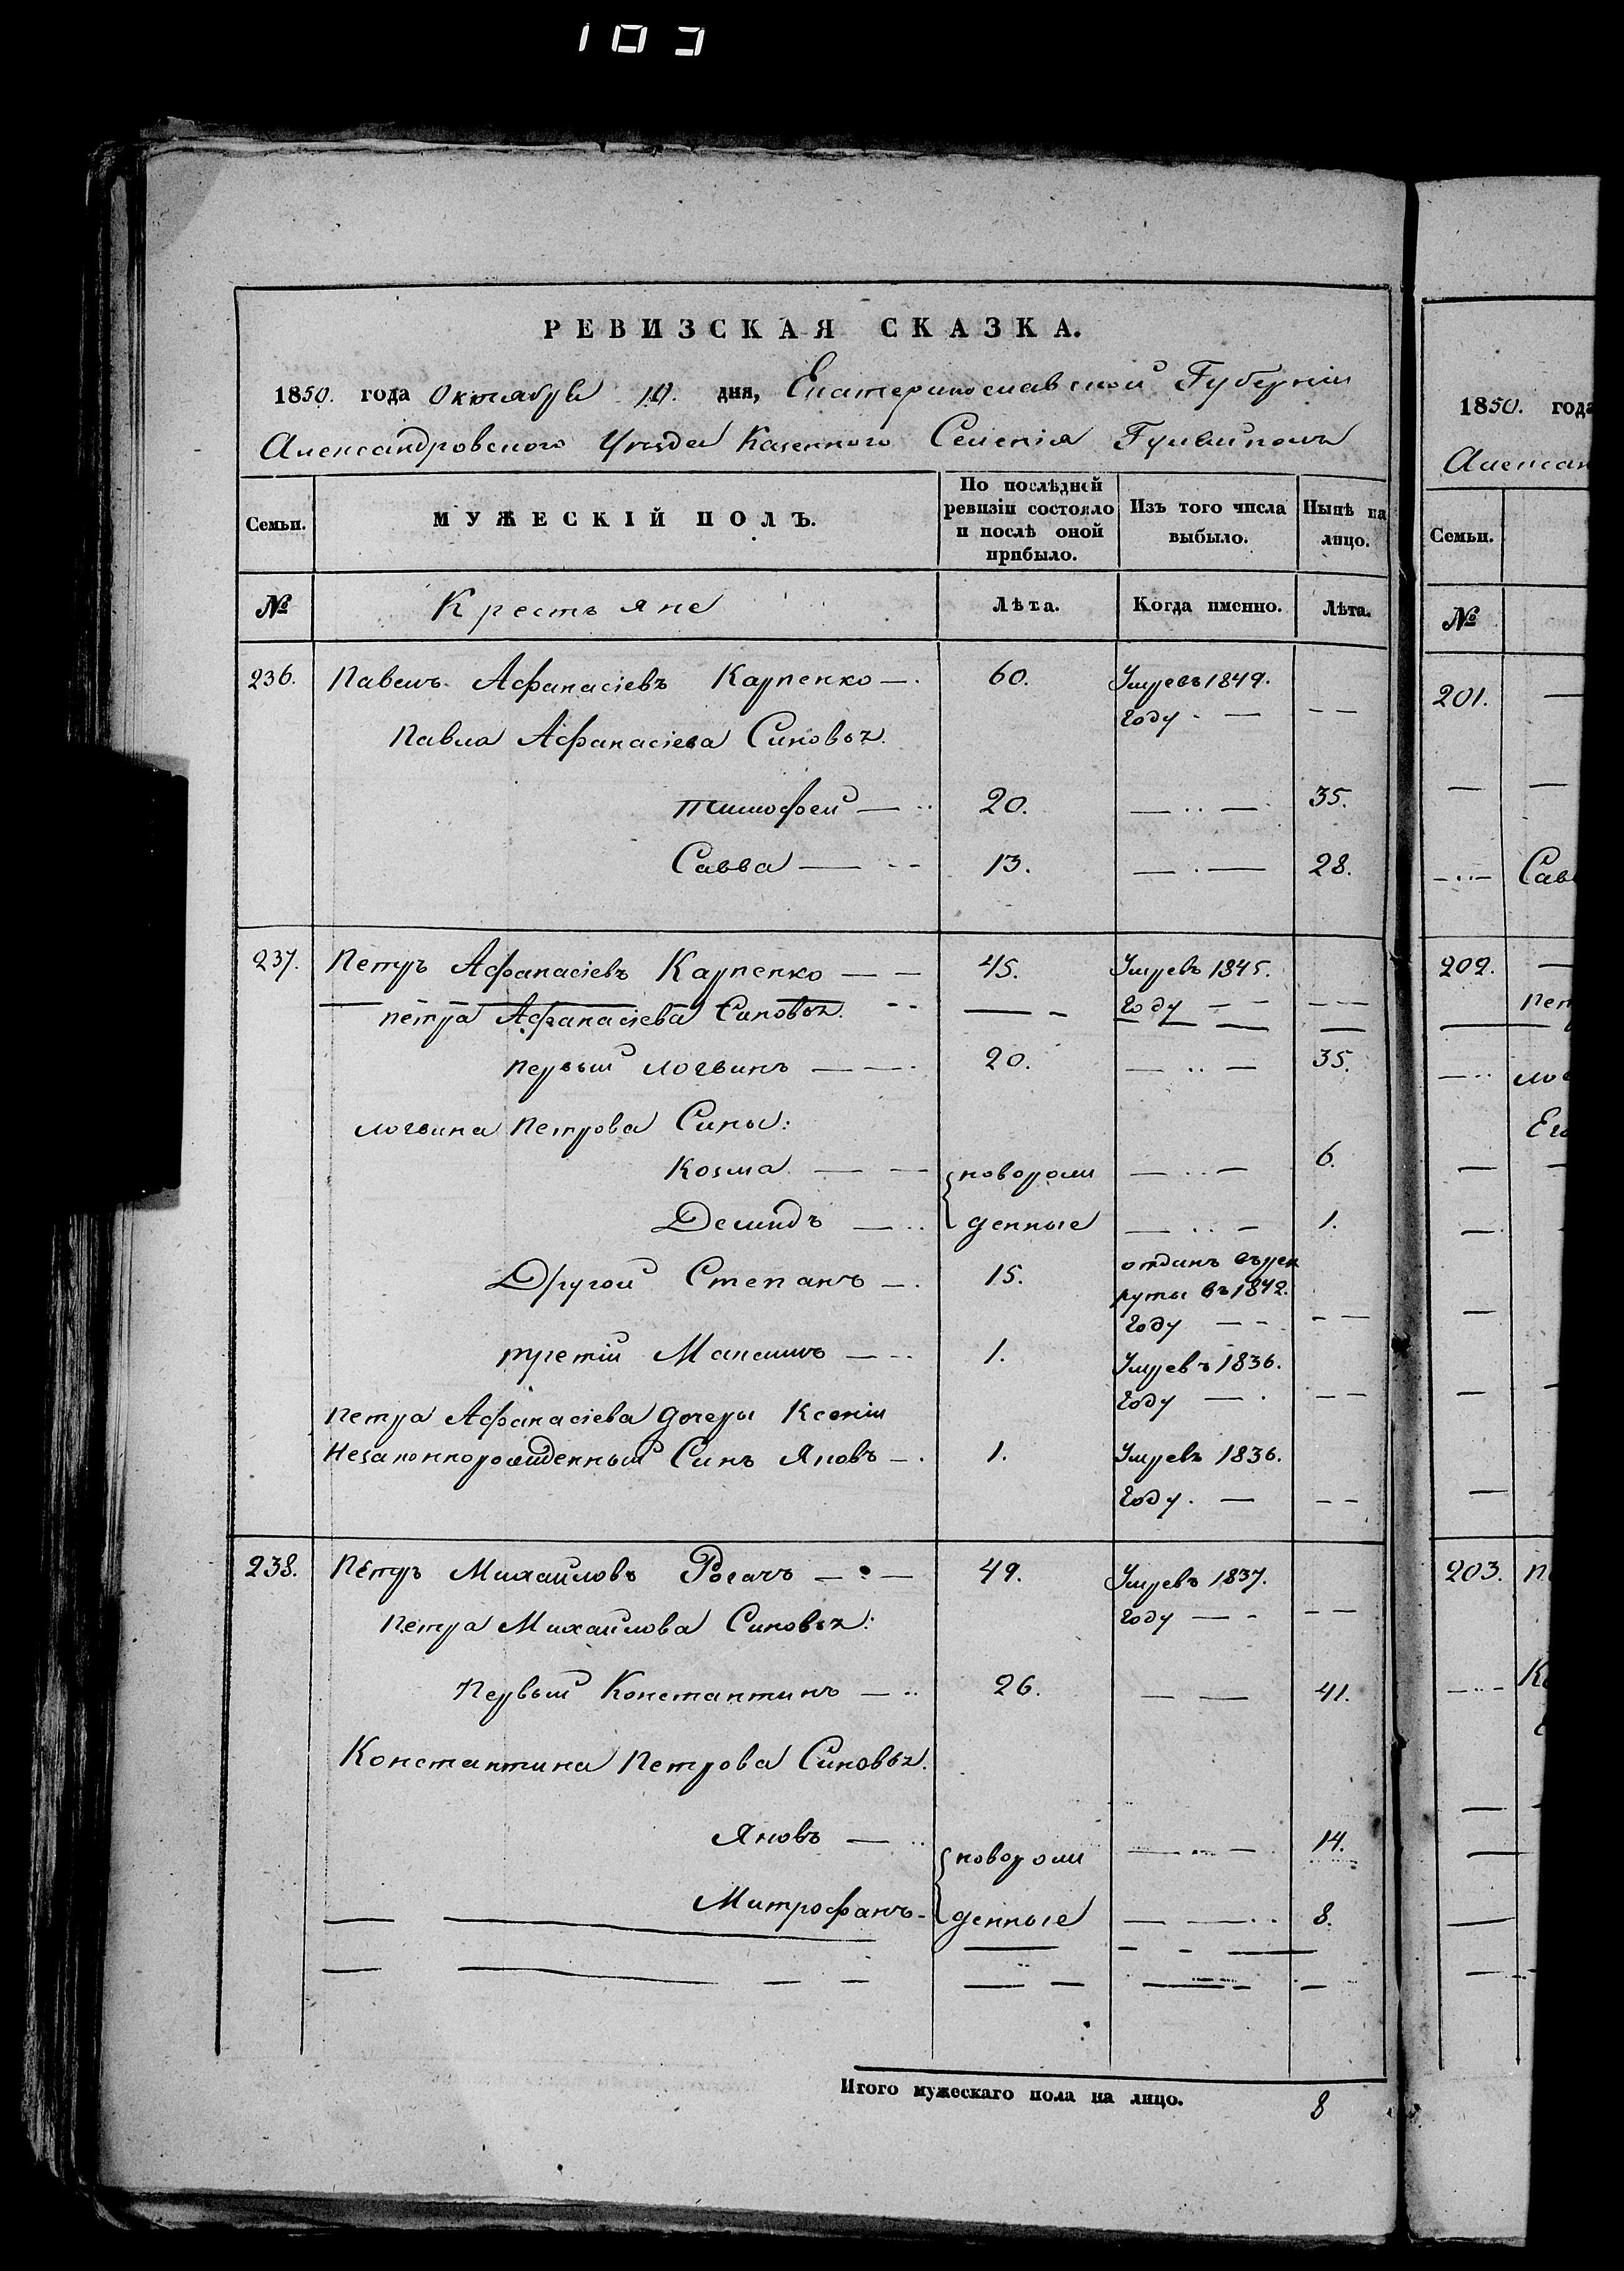 103
РЕВИЗСКАЯ СКАЗКА.
1850. года Октября 10. дня, Екатеринославской Губерніи
Александровского Уѣзда Казенного Селенія Гуляйполя
Семьи. МУЖЕСКІЙ ПОЛЪ. По послѣдней ревизіи состояло и послѣ оной прибыло. Изъ того числа выбыло. Нынѣ на лицо.
№ Крестьяне Лѣта. Когда именно. Лѣта.
236. Павелъ Афанасіевъ Карпенко — . 60. Умревъ 1849.
году - — — —
Павла Афанасіева Синовья.
Тимофей — .. 20. — .. — 35.
Савва — - - 13. — . — 28.
237. Петръ Афанасіевъ Карпенко — — 45. Умревъ 1845.
году — - — —
Петра Афанасіева Синовья.
первый Логвинъ — — . 20. — .. — 35.
Логвина Петрова Сины:
Козма — — новорож — .. — 6.
Демидъ — .. денные — .. — 1.
Другой Степанъ — . 15. отданъ върек
руты въ 1842.
году — - - —
третій Максимъ — - . 1. Умревъ 1836.
году — . — —
Петра Афанасіева дочеры Ксеніи
Незаконнорожденный Синъ Яковъ — . 1. Умревъ 1836.
году. — — —
238. Петръ Михайловъ Рогачъ — . — 49. Умревъ 1837.
году — - - —
Петра Михайлова Синовья:
Первый Константинъ — .. 26. — — 41.
Константина Петрова Синовья.
Яковъ — .. новорож — .. — 14.
Митрофанъ - денные — — .. 8.
Итого мужескаго пола на лицо. 8
1850. года
Алексан
Семьи.
№
201. —
— —
— .. — Сав
202. —
Пет
— .. Лог
203. П
— .. — Ко